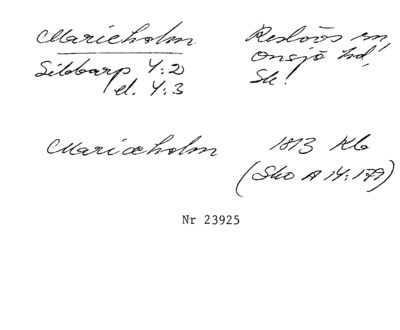 Marieholm
Reslövs sn
Onsjö hd
Sk!
Sibbarp 4:2
el. 4:3
Mariæholm
1813 Kb
(Sko A 14:179)
Nr 23925